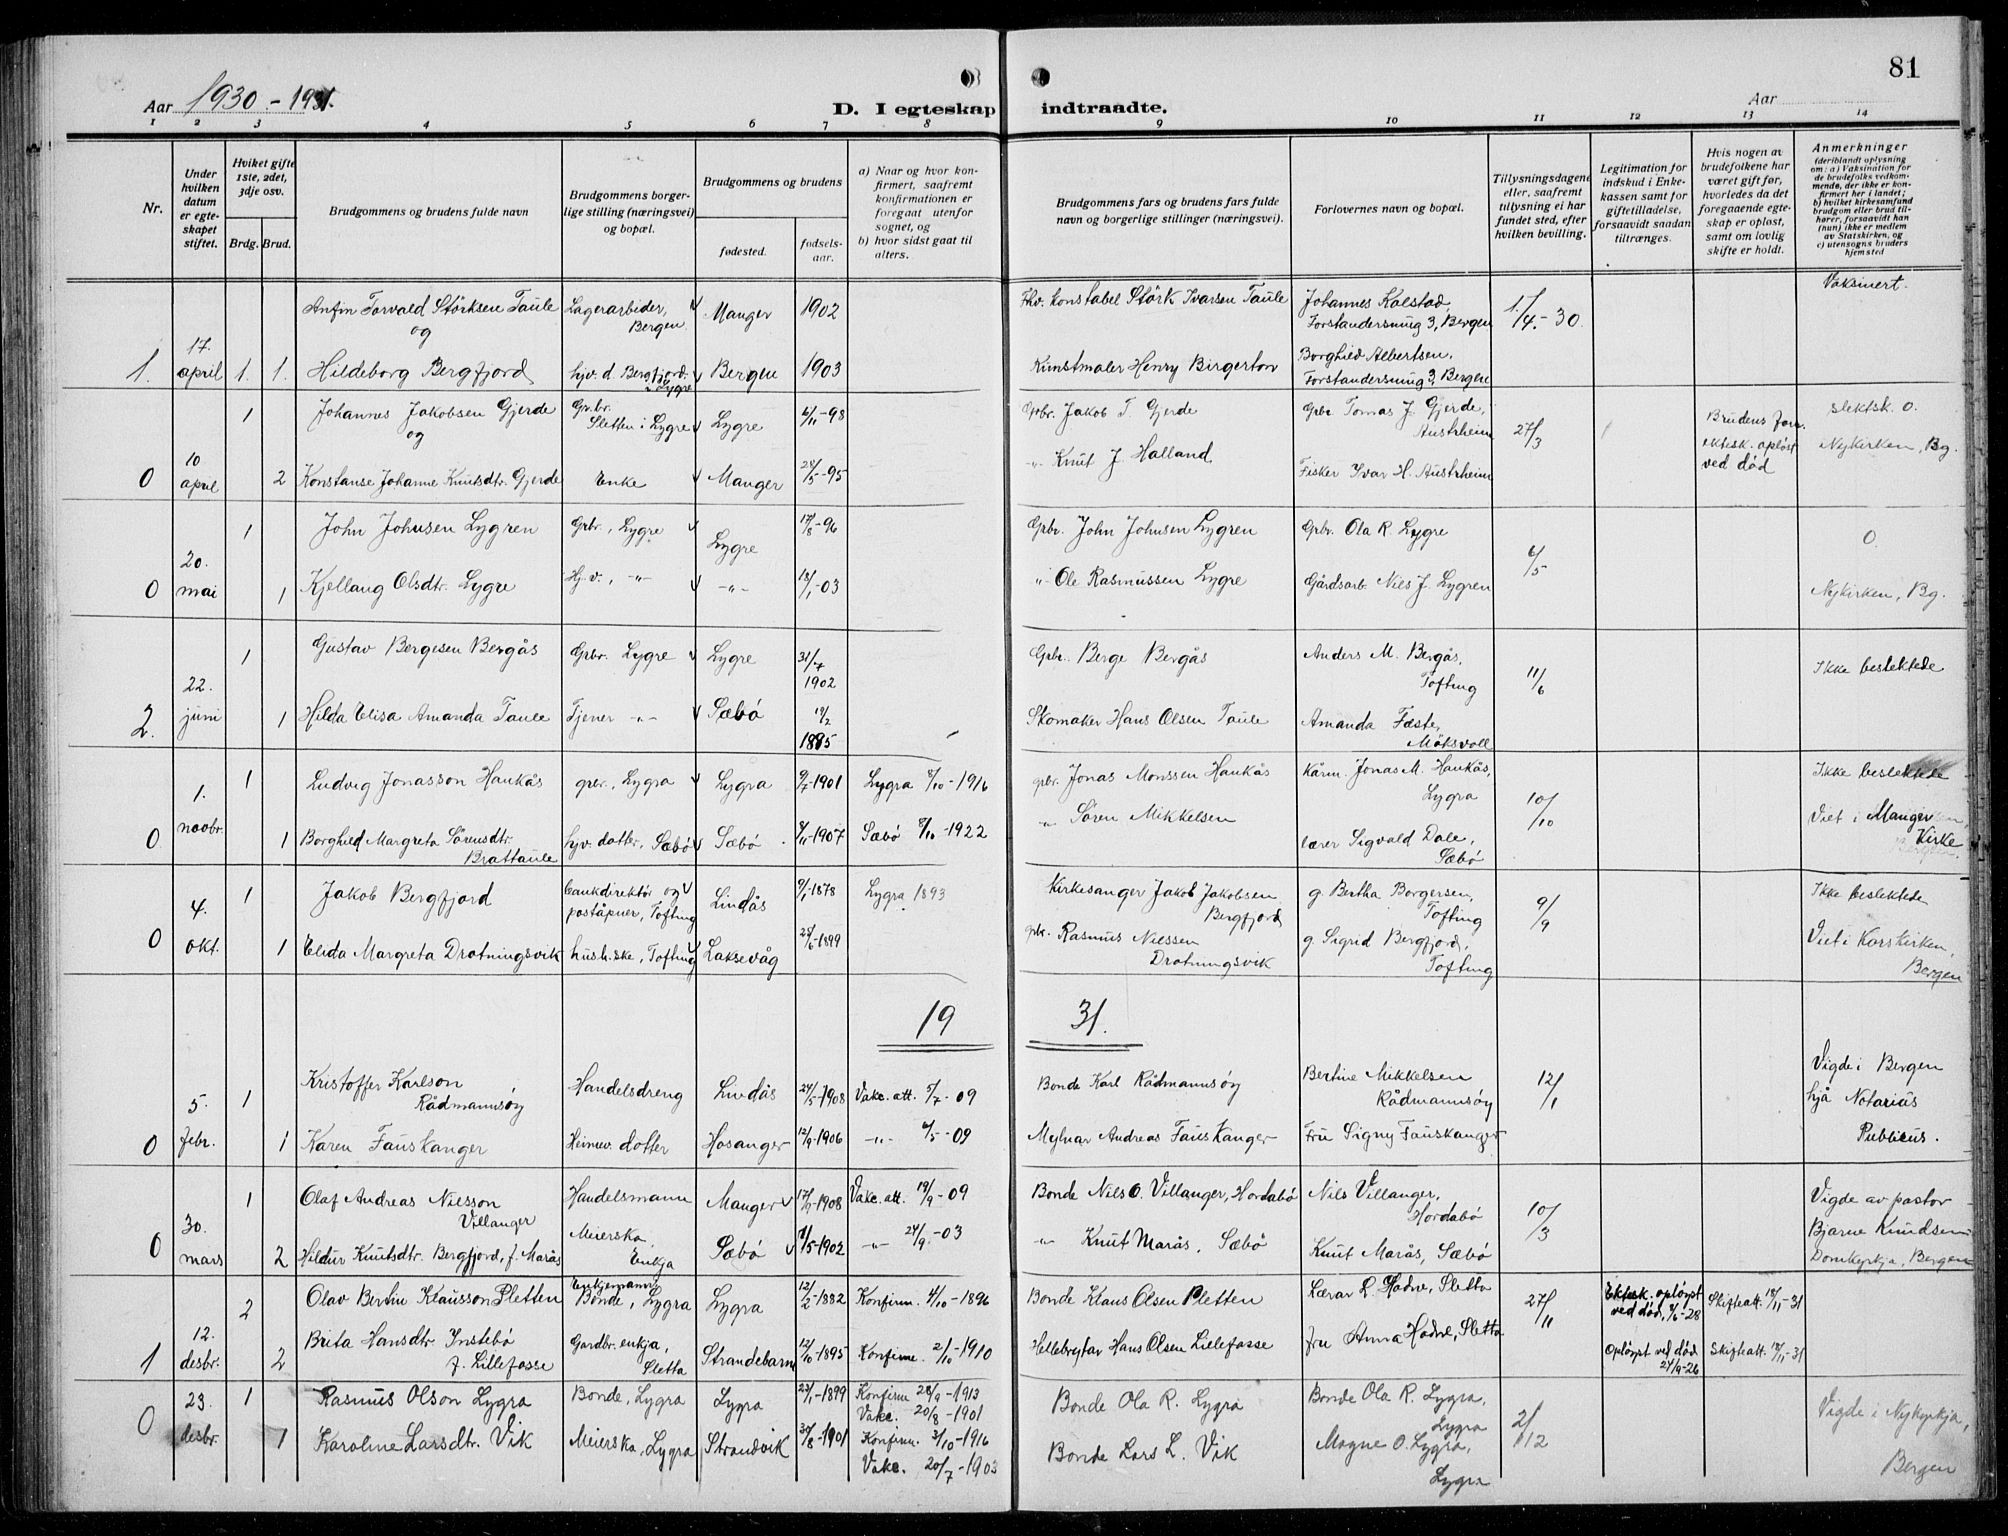 81
Aar 1930.-1931.
D. I egteskap indtraadte.
Aar
1 2 3 4 5 6 7 8 9 10 11 12 13 14
Nr.
Under hvilken datum er egteskapet stiftet.
Hviket gifte 1ste, 2det, 3dje osv.
Brdg. Brud.
Brudgommens og brudens fulde navn
Brudgommens borgerlige stilling (næringsvei) og bopæl.
Brudgommens og brudens
fødested.
fødselsaar.
a) Naar og hvor konfirmert, saafremt konfirmationen er foregaat utenfor sognet, og
b) hvor sidst gaat til alters.
Brudgommens fars og brudens fars fulde navn og borgerlige stillinger (næringsvei).
Forlovernes navn og bopæl.
Tillysningsdagene eller, saafremt tillysning ei har fundet sted, efter hvilken bevilling.
Legitimation for indskud i Enkekassen samt for giftetilladelse, forsaavidt saadan tiltrænges.
Hvis nogen av brudefolkene har været gift før, hvorledes da det foregaaende egteskap er opløst, samt om lovlig skifte er holdt.
Anmerkninger
(deriblandt oplysning om: a) Vaksination for de brudefolks vedkommende, der ikke er konfirmert her i landet; b) hvilket kirkesamfund brudgom eller brud tilhører, forsaavidt han (hun) ikke er medlem av Statskirken, og c) utensogns bruders hjemsted
Anfin Torvald Störksen Taule Lagerarbeider, Bergen Manger 1902 Fhv. konstabel Störk Ivarsen Taule Johannes Kalstad, Forstandersmug 3, Bergen 1/4.-30. Vaksinert.
og
1. 17. april 1. 1. Hildeborg Bergfjord hjv. d. Bergfjord. Lygre Bergen 1903 Kunstmaler Henry Birgerton Borghild Albertsen, Forstandersmug 3, Bergen
1 Johannes Jakobsen Gjerde Grbr. Sletten i Lygre Lygre 6/11-98 Grbr. Jakob T. Gjerde Grbr. Tomas J. Gjerde, Austrheim 27/3 Brudens forr. ektesk. opløst ved död slektsk. 0.
og
0 10 april 2 Konstanse Johanne Knutsdtr. Gjerde Enke Manger 28/5-95 -"- Knut J. Halland Fisker Ivar H. Austrheim Nykirken, Bg.
1 John Johnsen Lygren Grbr., Lygre Lygre 17/8-96 Grbr. John Johnsen Lygren Grbr. Ola R. Lygre 6/5 0.
0 20. mai 1 Kjellaug Olsdtr. Lygre Hj.v., -"- -"- 18/1-03 -"- Ole Rasmussen Lygre Gårdsarb. Nils J. Lygren Nykirken, Bg.
1 Gustav Bergesen Bergås Grbr. Lygre Lygre 31/7 1902 Grbr. Berge Bergås Anders M. Bergås, Tofting 11/6 Ikke beslektede
2. 22. juni 1 Hilda Elisa Amanda Taule Tjener -"- Sæbö 19/2 1885 Skomaker Hans Olsen Taule Amanda Fæste, Möksvoll
1 Ludvig Jonasson Haukås grbr., Lygra Lygra 9/7-1901 Lygra 8/10-1916 grbr. Jonas Monssen Haukås Kårm. Jonas M. Haukås, Lygra 10/10 Ikke beslektede
0 1. novbr. 1 Borghild Margreta Sörensdtr. Brattaule hjv. dotter, Sæbö Sæbö 8/11-1907 Sæbö 8/10-1922 " Sören Mikkelsen lærer Sigvald Dale, Sæbö Viet i Manger Kirke
1 Jakob Bergfjord bankdirektör og poståpner, Tofting Lindås 9/1-1878 Lygra 1893 Kirkesanger Jakob Jakobsen Bergfjord g. Bertha Borgersen, Tofting 9/9 Ikke beslektede
0 4. okt. 1 Elida Margreta Drotningsvik hush.ske, Tofting Laksevåg 28/6-1899 gbr. Rasmus Nilssen Drotningsvik g. Sigrid Bergfjord, Tofting Viet i Korskirken, Bergen
19 31.
5. 1 Kristoffer Karlson Rådmannsöy Handelsdreng Lindås 24/5-1908 Vakc. att. 5/7-09 Bonde Karl Rådmannsöy Bertine Mikkelsen Rådmannsöy 12/1 Vigde i Bergen
0 febr. 1 Karen Fauskanger Heimev. dotter Hosanger 12/9-1906 -"- 6/5-09 Mylnar Andreas Fauskanger Fru Signy Fauskanger hjå Notarius Publicus.
1 Olaf Andreas Nilsson Villanger Handelsmann Manger 17/9-1908 Vakc. att. 19/9-09 Bonde Nils O. Villanger, Hordabö Nils Villanger, Hordabö 10/3 Vigde av pastor Bjarne Knudsen
0 30. mars 2 Hildur Knutsdtr. Bergfjord, f. Marås Meierska, Enkja Sæbö 11/5-1902 -"- 24/9-03 " Knut Marås, Sæbö Knut Marås, Sæbö Domkyrkja, Bergen
2 Olav Bertin Klausson Sletten Enkjemann Bonde, Lygra Lygra 12/2-1882 Konfirm. 4/10-1896 Bonde Klaus Olsen Sletten Lærar L. Hodne, Sletta 27/11 Ektsk. oplöyst ved död, 8/6-28 Skifteatt. 18/11-31
1 12. desbr. 2 Brita Hansdtr. Instebö f. Lillefosse Gardbr. enkja, Sletta Strandebarm 12/10-1895 Konfirm. 2/10-1910 Hellebrytar Hans Olsen Lillefosse fru Anna Hodne, Sletta Oplöyst ved död 24/9-26 Skifteatt. 18/11-31
0 23. 1 Rasmus Olson Lygra Bonde, Lygra Lygra 23/1-1899 Konfirm 28/9-1913 Vakc. 20/8-1901 Bonde Ola R. Lygra Bonde Ola R. Lygra, Lygra 2/12 Vigde i Nykyrkja,
desbr. 1 Karoline Larsdtr. Vik Meierska, Lygra Strandvik 30/8-1901 Konfirm 3/10-1916 Vakc. 20/7-1903 Bonde Lars L. Vik Magne O. Lygra, Lygra Bergen